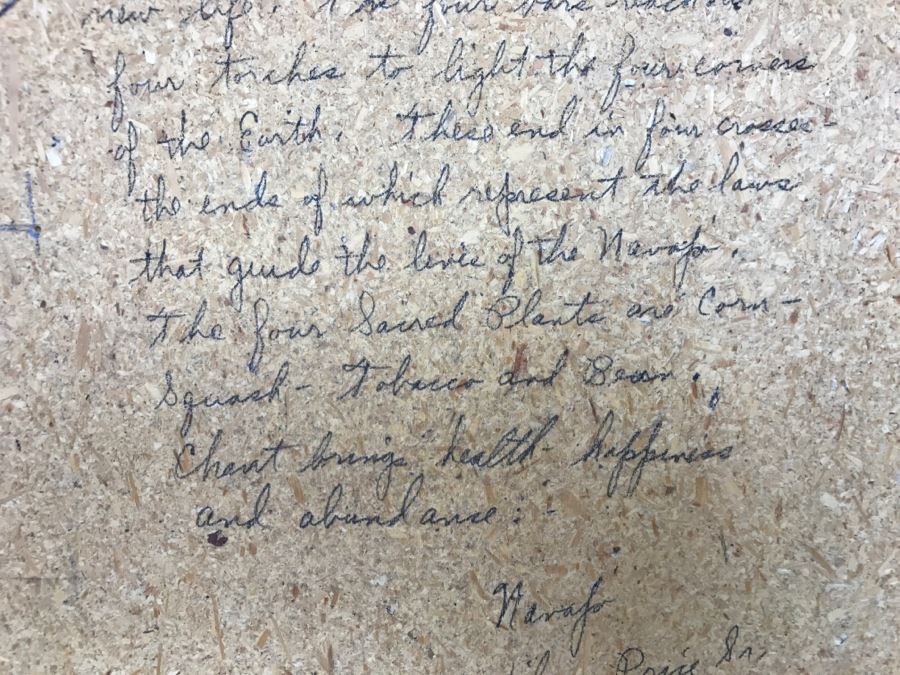 new life. The four bars
four torches to light the four corners
of the Earth. These end in four crosses -
the ends of which represent the laws
that guide the lives of the Navajo.
The four Sacred Plants are Corn -
Squash - Tobacco and Bean.
Chant brings health - happiness
and abundance : -
Navajo
Sr.